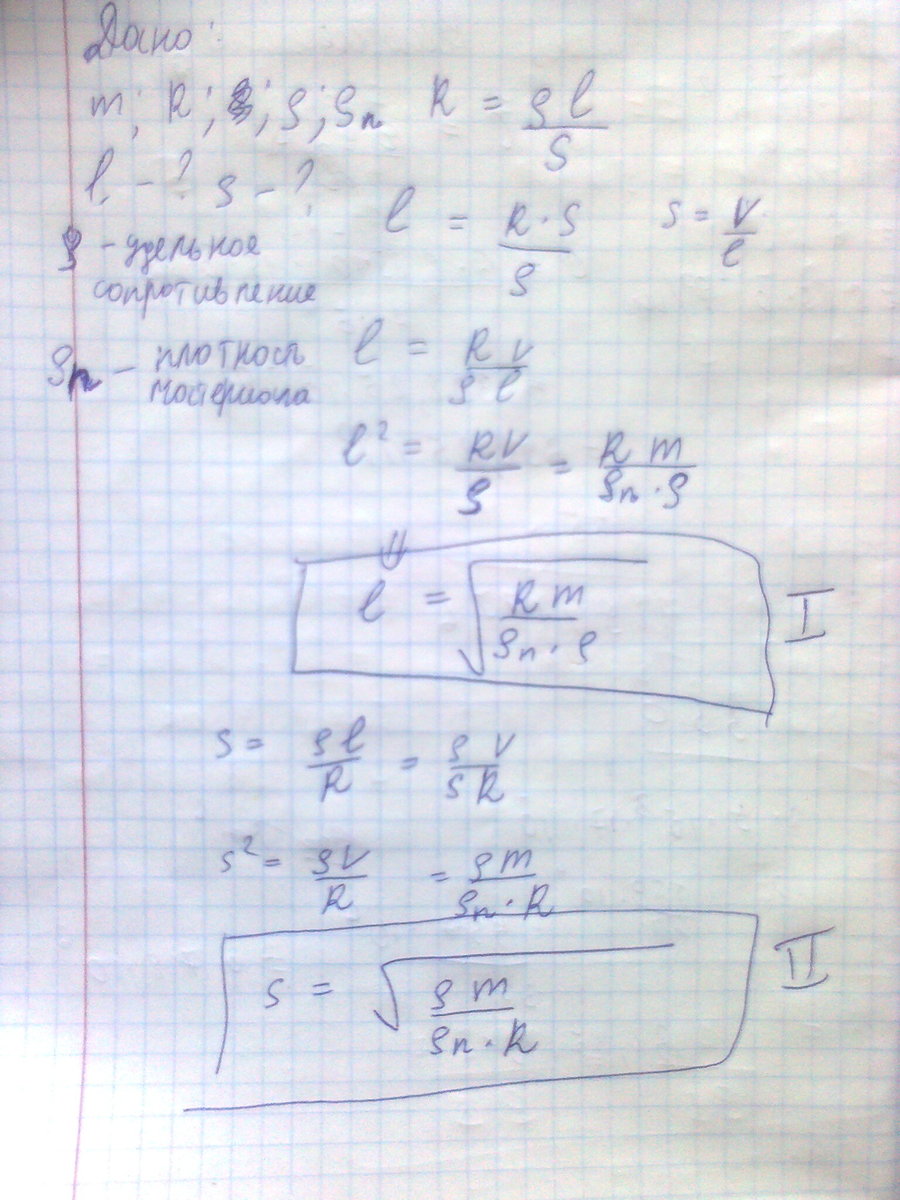 Дано:
m; R; ρ; ρп R = ρl/S
l - ? S - ?
l = R·S/ρ S = V/l
ρ - удельное
сопротивление
ρп - плотность
материала
l = R V/ρ l
l² = RV/ρ = R m/ρп·ρ
⇓
l = √(R m/ρп·ρ) I
S = ρl/R = ρ V/S R
S² = ρV/R = ρm/ρп·R
S = √(ρ m/ρп·R) II